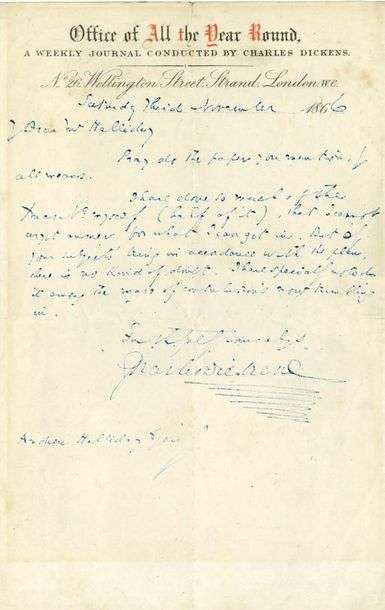 Office of All the Year Round,
A WEEKLY JOURNAL CONDUCTED BY CHARLES DICKENS.
No. 26, Wellington Street, Strand, London. W.C.
Saturday Third November 1866
My Dear Mr Halliday
Pray do the paper you mention, by
all means.
I have done so much of the
Xmas No. myself (half of it), that I cannot
yet answer for what I can get in. But of
your subject's being in accordance with its plan,
there is no kind of doubt. I have specially noted
it among the mass of contributions now tumbling
in.
Faithfully yours always
Charles Dickens
Andrew Halliday Esquire